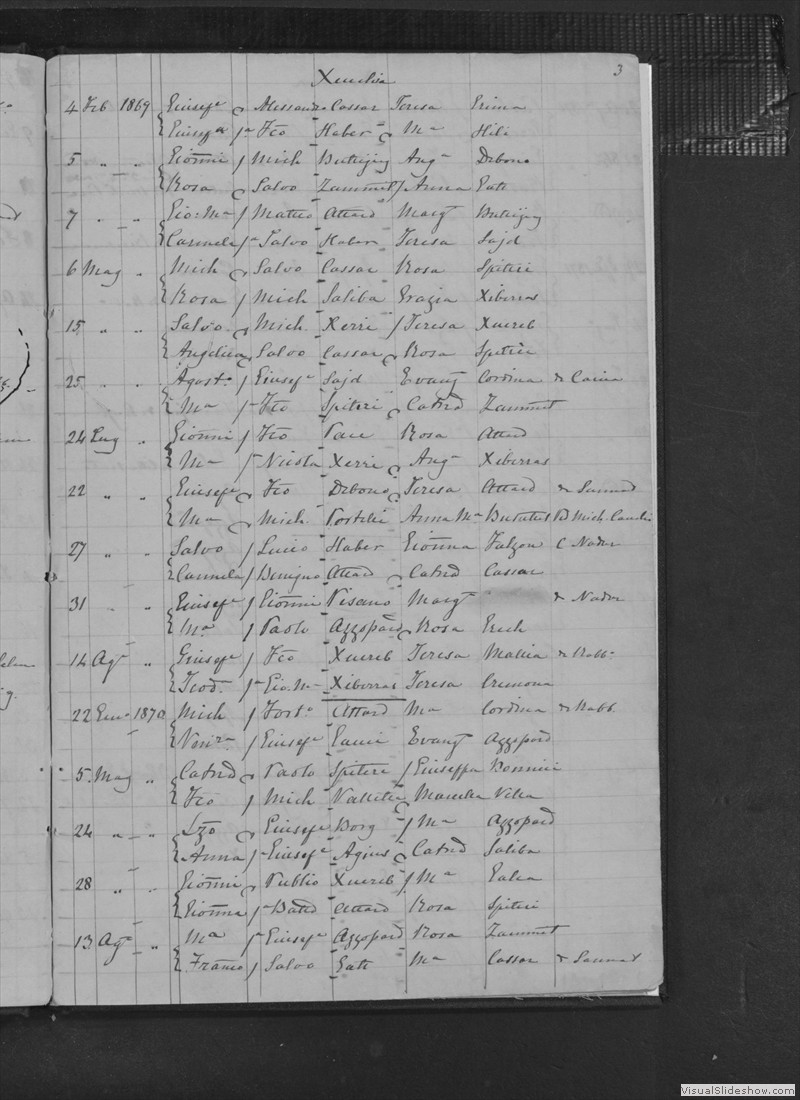 Xeuchia 3
4 Feb 1869 Giusepe Alessandro Cassar Teresa Grima
Giusepa Fco Haber Ma Hili
5 " " Gionni Mich Buttigieg Anga Debono
Rosa Salvo Zammit Anna Gatt
7 " " Gio: Ma Matteo Attard Margt Buttigieg
Carmela Salvo Haber Teresa Sajd
6 Mag " Mich Salvo Cassar Rosa Spiteri
Rosa Mich Saliba Grazia Xiberras
15 " " Salvo Mich Xerri Teresa Xuereb
Angelica Salvo Cassar Rosa Spiteri
25 " " Agost. Giusepe Sajd Evangt Cordina
Ma Fco Spiteri Catnd Zammit
24 Lug " Gionni Fco Pace Rosa Attard
Ma Nicola Xerri Anga Xiberras
22 " " Giusepe Fco Debono Teresa Attard
Ma Mich Portelli Anna Ma Mich
27 " " Salvo Lucio Haber Gionna Falzon C Nadur
Carmela Benigno Attard Catnd Cassar
31 " " Giusepe Gionni Pisano Margt Nadur
Ma Paolo Azzopard Rosa Grech
14 Aga " Giusepe Fco Xuereb Teresa Mallia Rabb.
Teod. Gio. Ma Xiberras Teresa Cremona
22 Genn 1870 Mich Fort. Attard Ma Cordina Rabb.
Venra Giusepe Gauci Evangt Azzopard
5. Mag " Catnd Paolo Spiteri Giuseppa Bonnici
Fco Mich Vallette Vella
24 " " Lzo Giusepe Borg Ma Azzopard
Anna Giusepe Agius Catnd Saliba
28 " " Gionni Publio Xuereb Ma Galea
Gionna Attard Rosa Spiteri
13 Aga " Ma Giusepe Azzopard Rosa Zammit
Franco Salvo Gatt Ma Cassar Sannat
VisualSlideshow.com